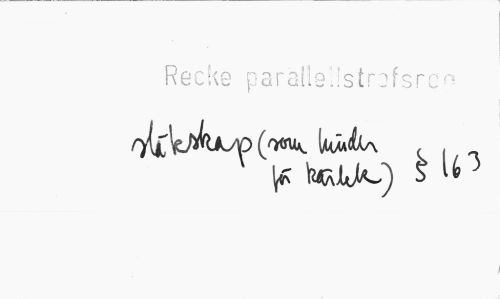 Recke parallellstrofsreg
släkskap (som hinder
för kärlek) § 163